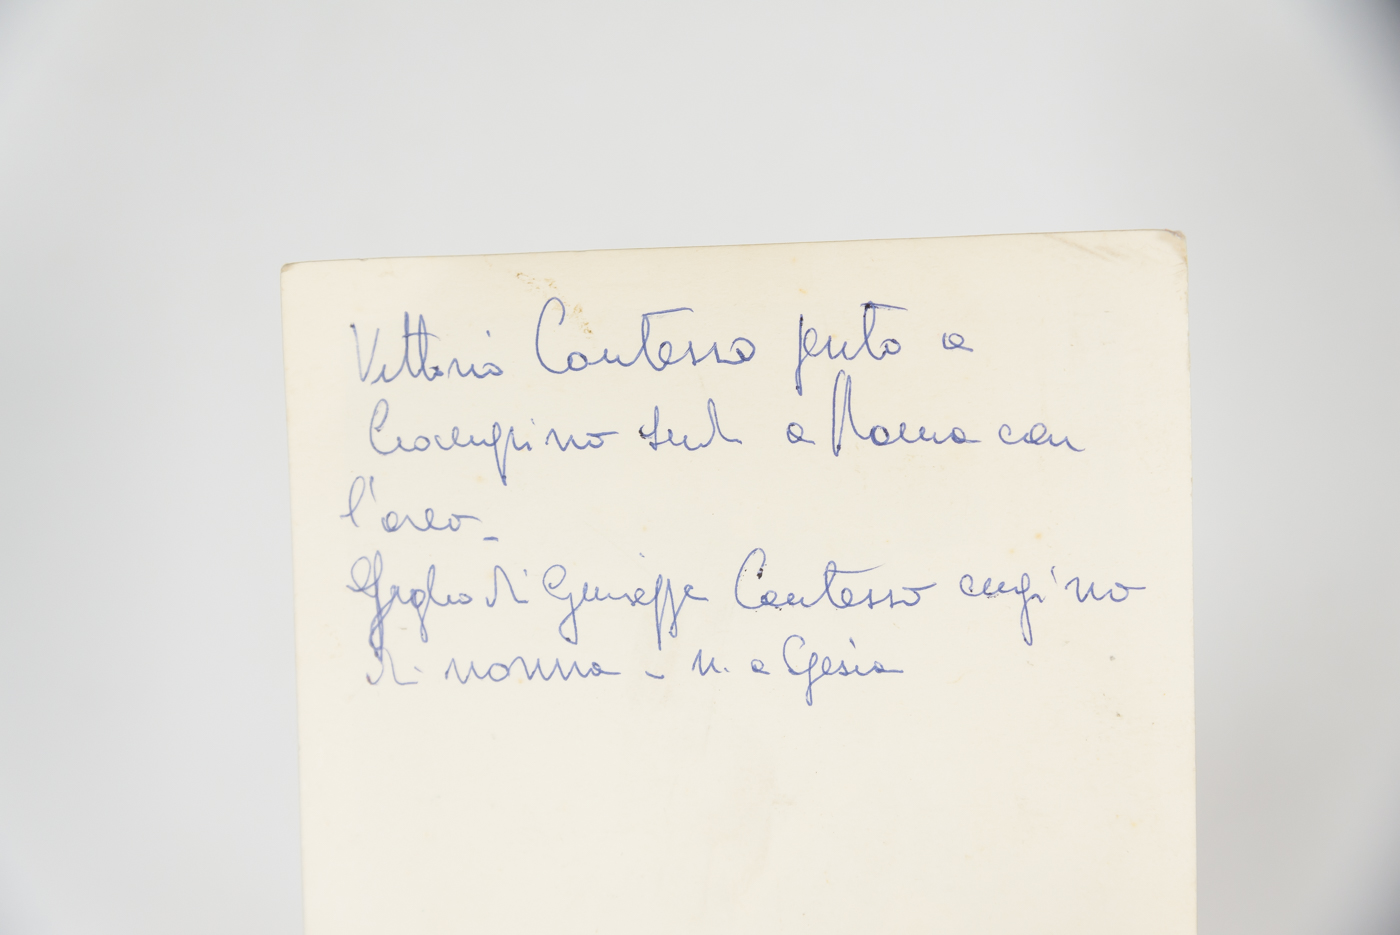 Vittorio Contesso giunto a
Ciampino sud a Roma con
l'aereo -
figlio di Giuseppe Contesso cugino
di nonna - n. a Gesia